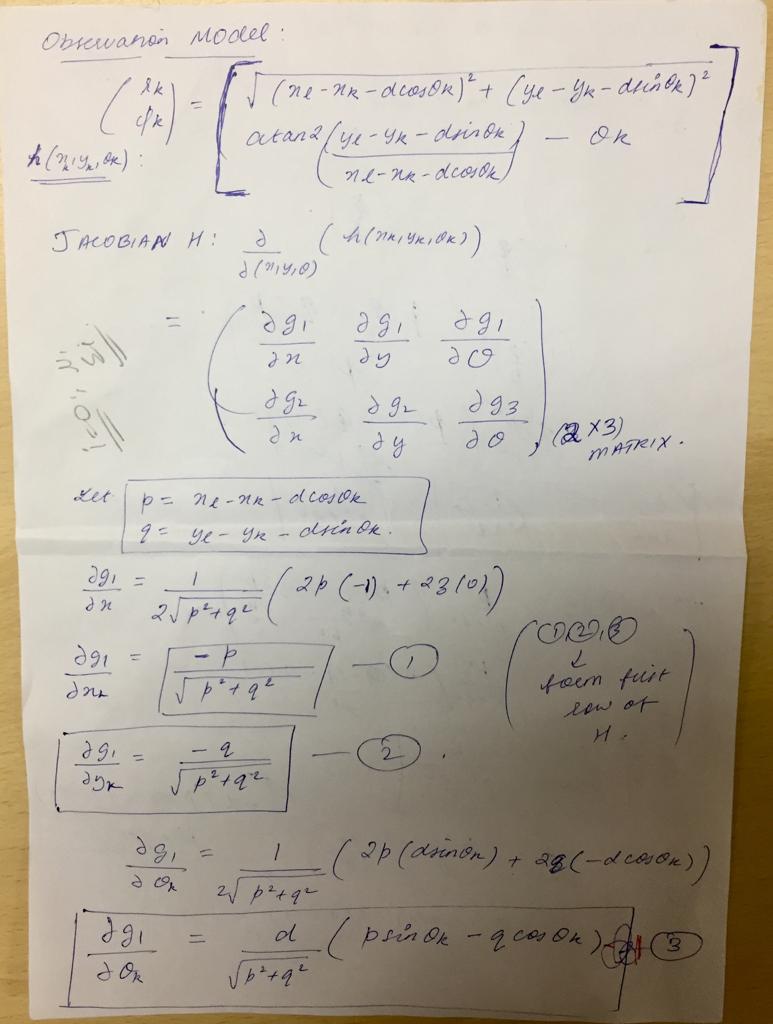 Observation Model:
(rk φk) = [ √(xl-xk-dcosθk)² + (yl-yk-dsinθk)²
atan2 (yl-yk-dsinθk / xl-xk-dcosθk) - θk ]
h(xk,yk,θk):
JACOBIAN H: ∂/∂(x,y,θ) (h(xk,yk,θk))
= ( ∂g1/∂x ∂g1/∂y ∂g1/∂θ
∂g2/∂x ∂g2/∂y ∂g3/∂θ ), (2×3) MATRIX.
Let p = xl-xk-dcosθk
q = yl-yk-dsinθk.
∂g1/∂x = 1/2√p²+q² (2p(-1) + 2q(0))
∂g1/∂xk = -p/√p²+q² — 1
(1,2,3
↓
form first
row of
H.)
∂g1/∂yk = -q/√p²+q² — 2.
∂g1/∂θk = 1/2√p²+q² (2p(dsinθk) + 2q(-dcosθk))
∂g1/∂θk = d/√p²+q² (psinθk - qcosθk) — 3